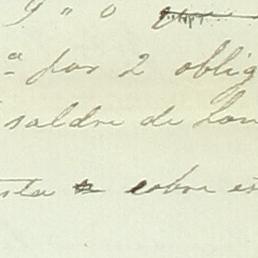 9 " 0
ª por 2 oblig
saldre de Lon
sta cobre es